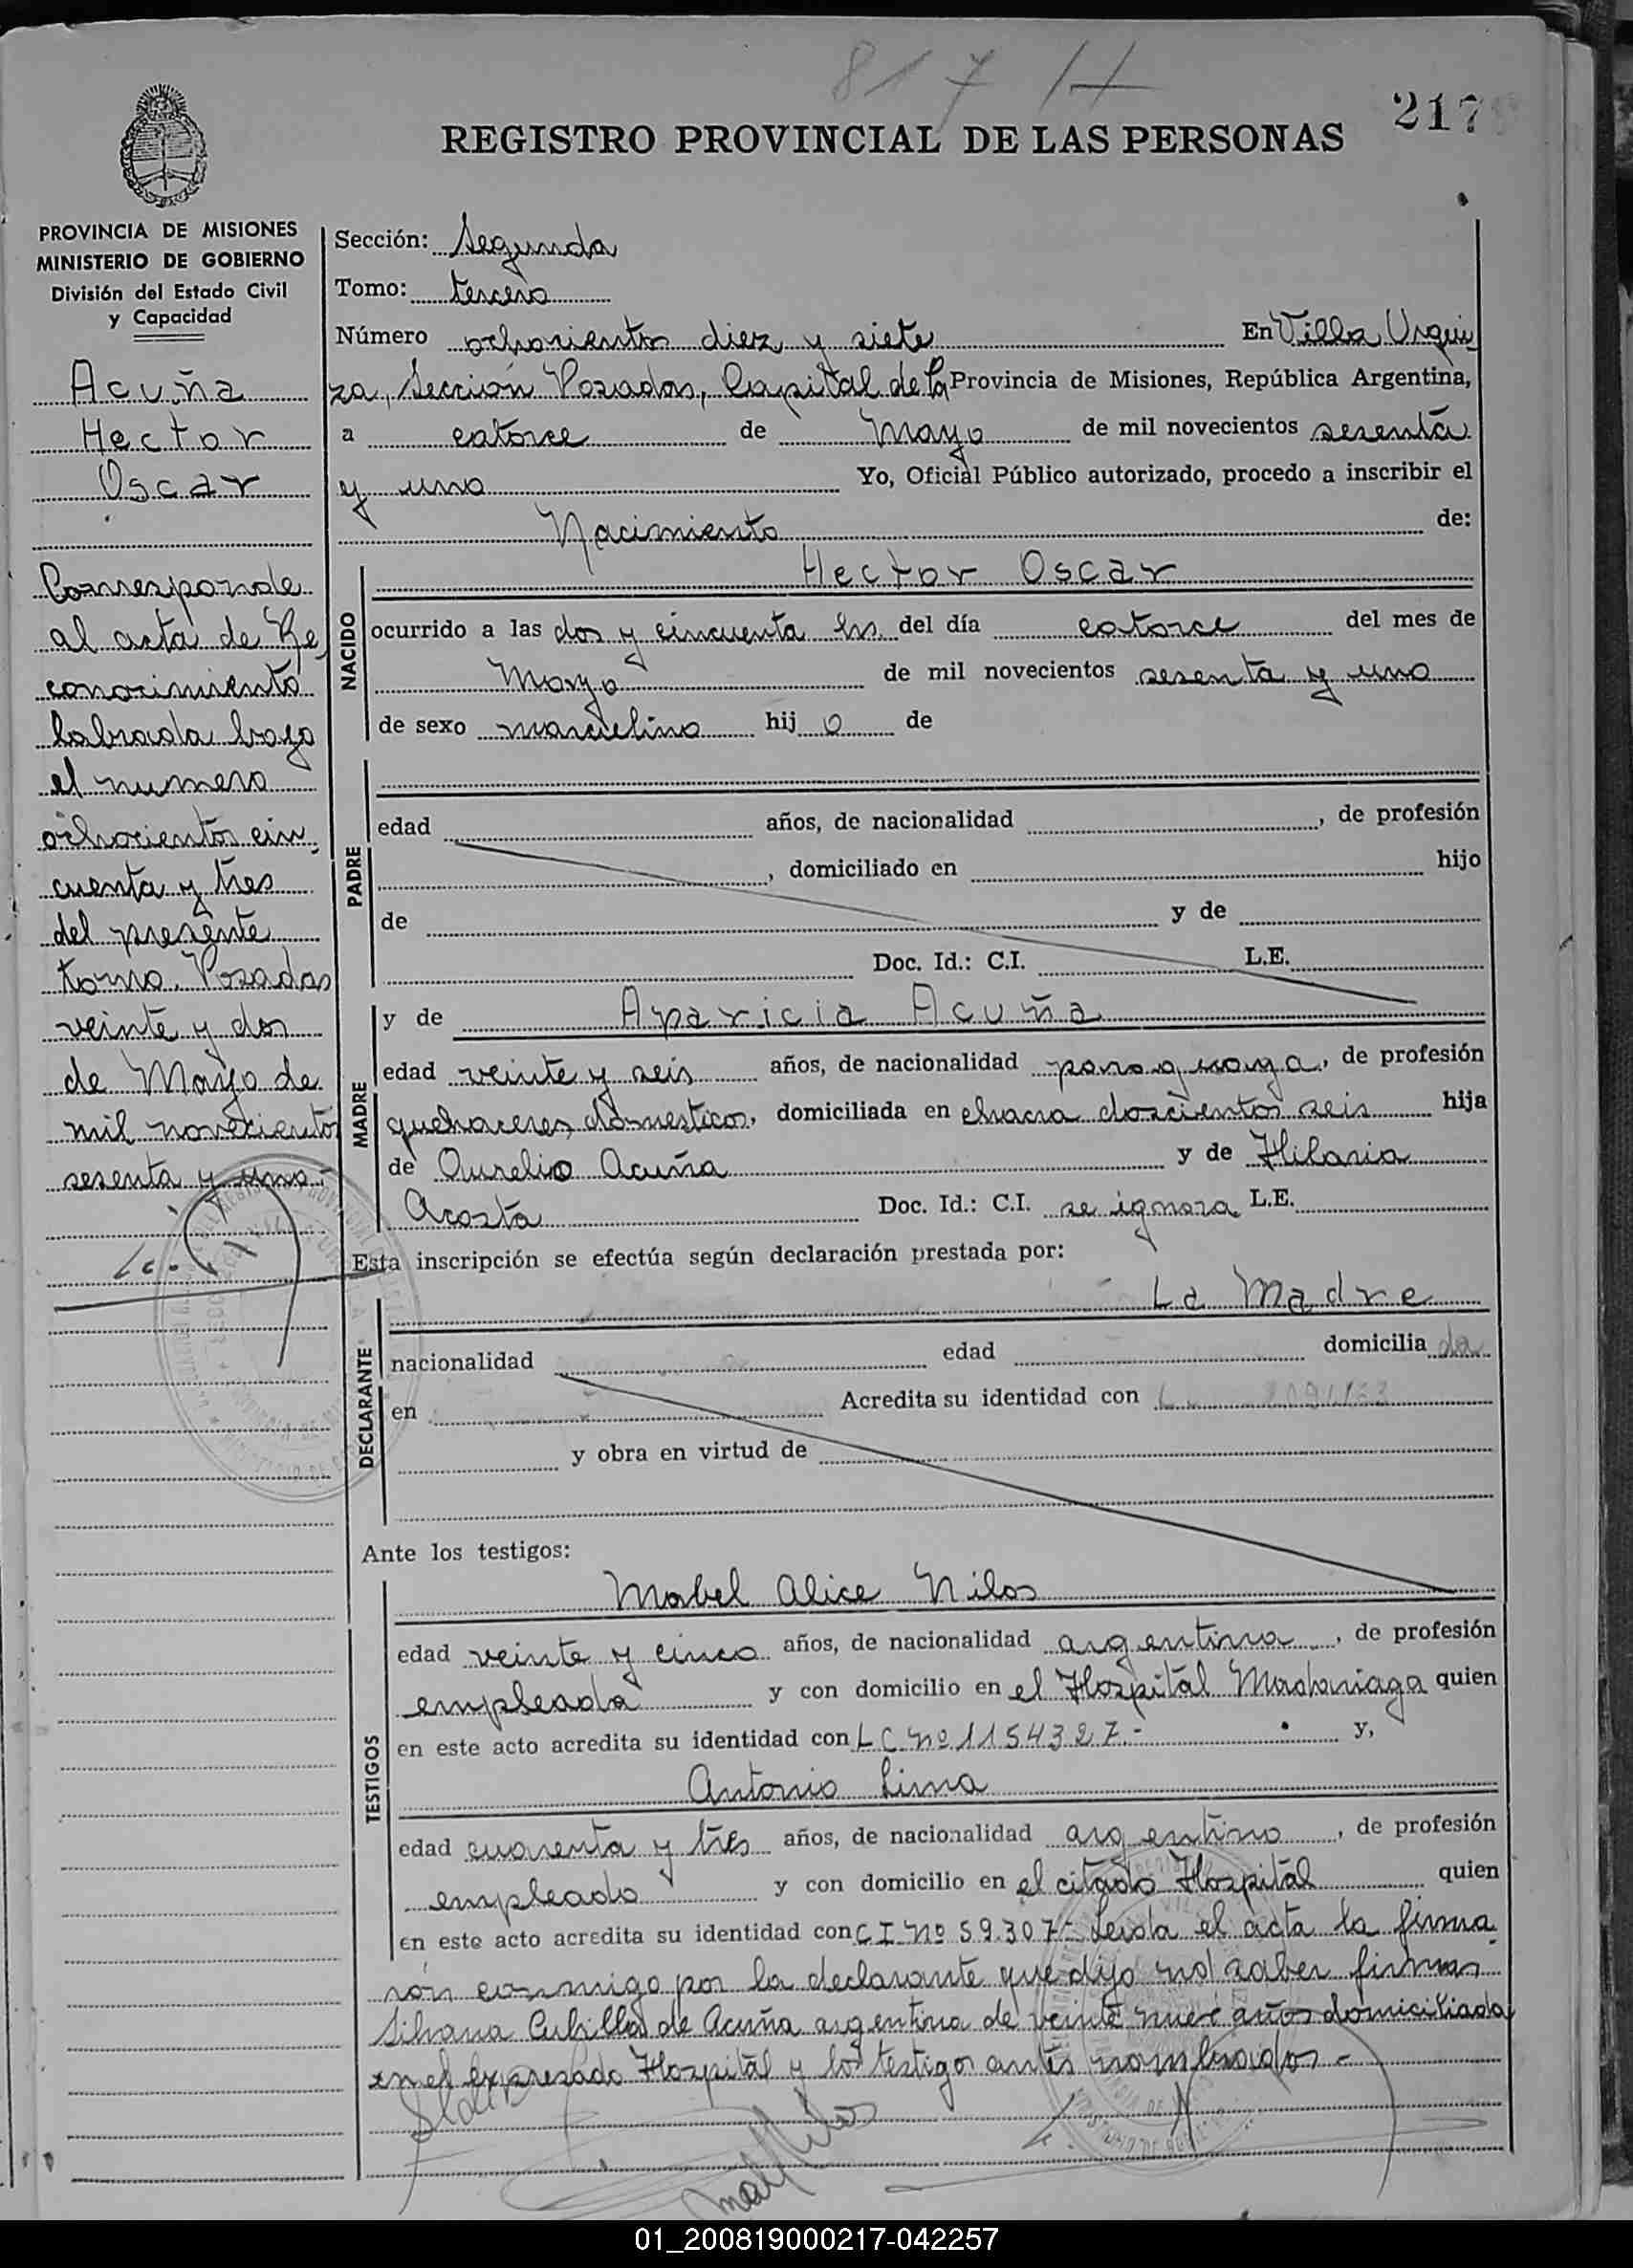 817
217
REGISTRO PROVINCIAL DE LAS PERSONAS
PROVINCIA DE MISIONES
MINISTERIO DE GOBIERNO
División del Estado Civil
y Capacidad
Acuña
Hector
Oscar
Corresponde
al acta de Re
conocimiento
labrada bajo
el numero
ochocientos cin
cuenta y tres
del presente
tomo. Posadas
veinte y dos
de Mayo de
mil novecientos
sesenta y uno.-
Sección: Segunda
Tomo: tercero
Número ochocientos diez y siete En Villa Urqui
za, Sección Posadas, Capital de la Provincia de Misiones, República Argentina,
a catorce de Mayo de mil novecientos sesenta
y uno Yo, Oficial Público autorizado, procedo a inscribir el
Nacimiento de:
NACIDO
Hector Oscar
ocurrido a las dos y cincuenta hs. del día catorce del mes de
Mayo de mil novecientos sesenta y uno
de sexo masculino hij o de
PADRE
edad años, de nacionalidad , de profesión
, domiciliado en hijo
de y de
Doc. Id.: C.I. L.E.
MADRE
y de Aparicia Acuña
edad veinte y seis años, de nacionalidad paraguaya, de profesión
quehaceres domesticos, domiciliada en chacra doscientos seis hija
de Aurelio Acuña y de Hilaria
Acosta Doc. Id.: C.I. se ignora L.E.
Esta inscripción se efectúa según declaración prestada por:
DECLARANTE
La Madre
nacionalidad edad domicilia da
en Acredita su identidad con
y obra en virtud de
Ante los testigos:
TESTIGOS
Mabel Alice Nilos
edad veinte y cinco años, de nacionalidad argentina, de profesión
empleada y con domicilio en el Hospital Madariaga quien
en este acto acredita su identidad con L C Nº 1154327.- y,
Antonio Lima
edad cuarenta y tres años, de nacionalidad argentino, de profesión
empleado y con domicilio en el citado Hospital quien
en este acto acredita su identidad con C I Nº 59.307- Leida el acta la firma
rón conmigo por la declarante que dijo no saber firmar
Silvana Cubilla de Acuña argentina de veinte nueve años domiciliada
en el expresado Hospital y los testigos antes nombrados.-
01_200819000217-042257